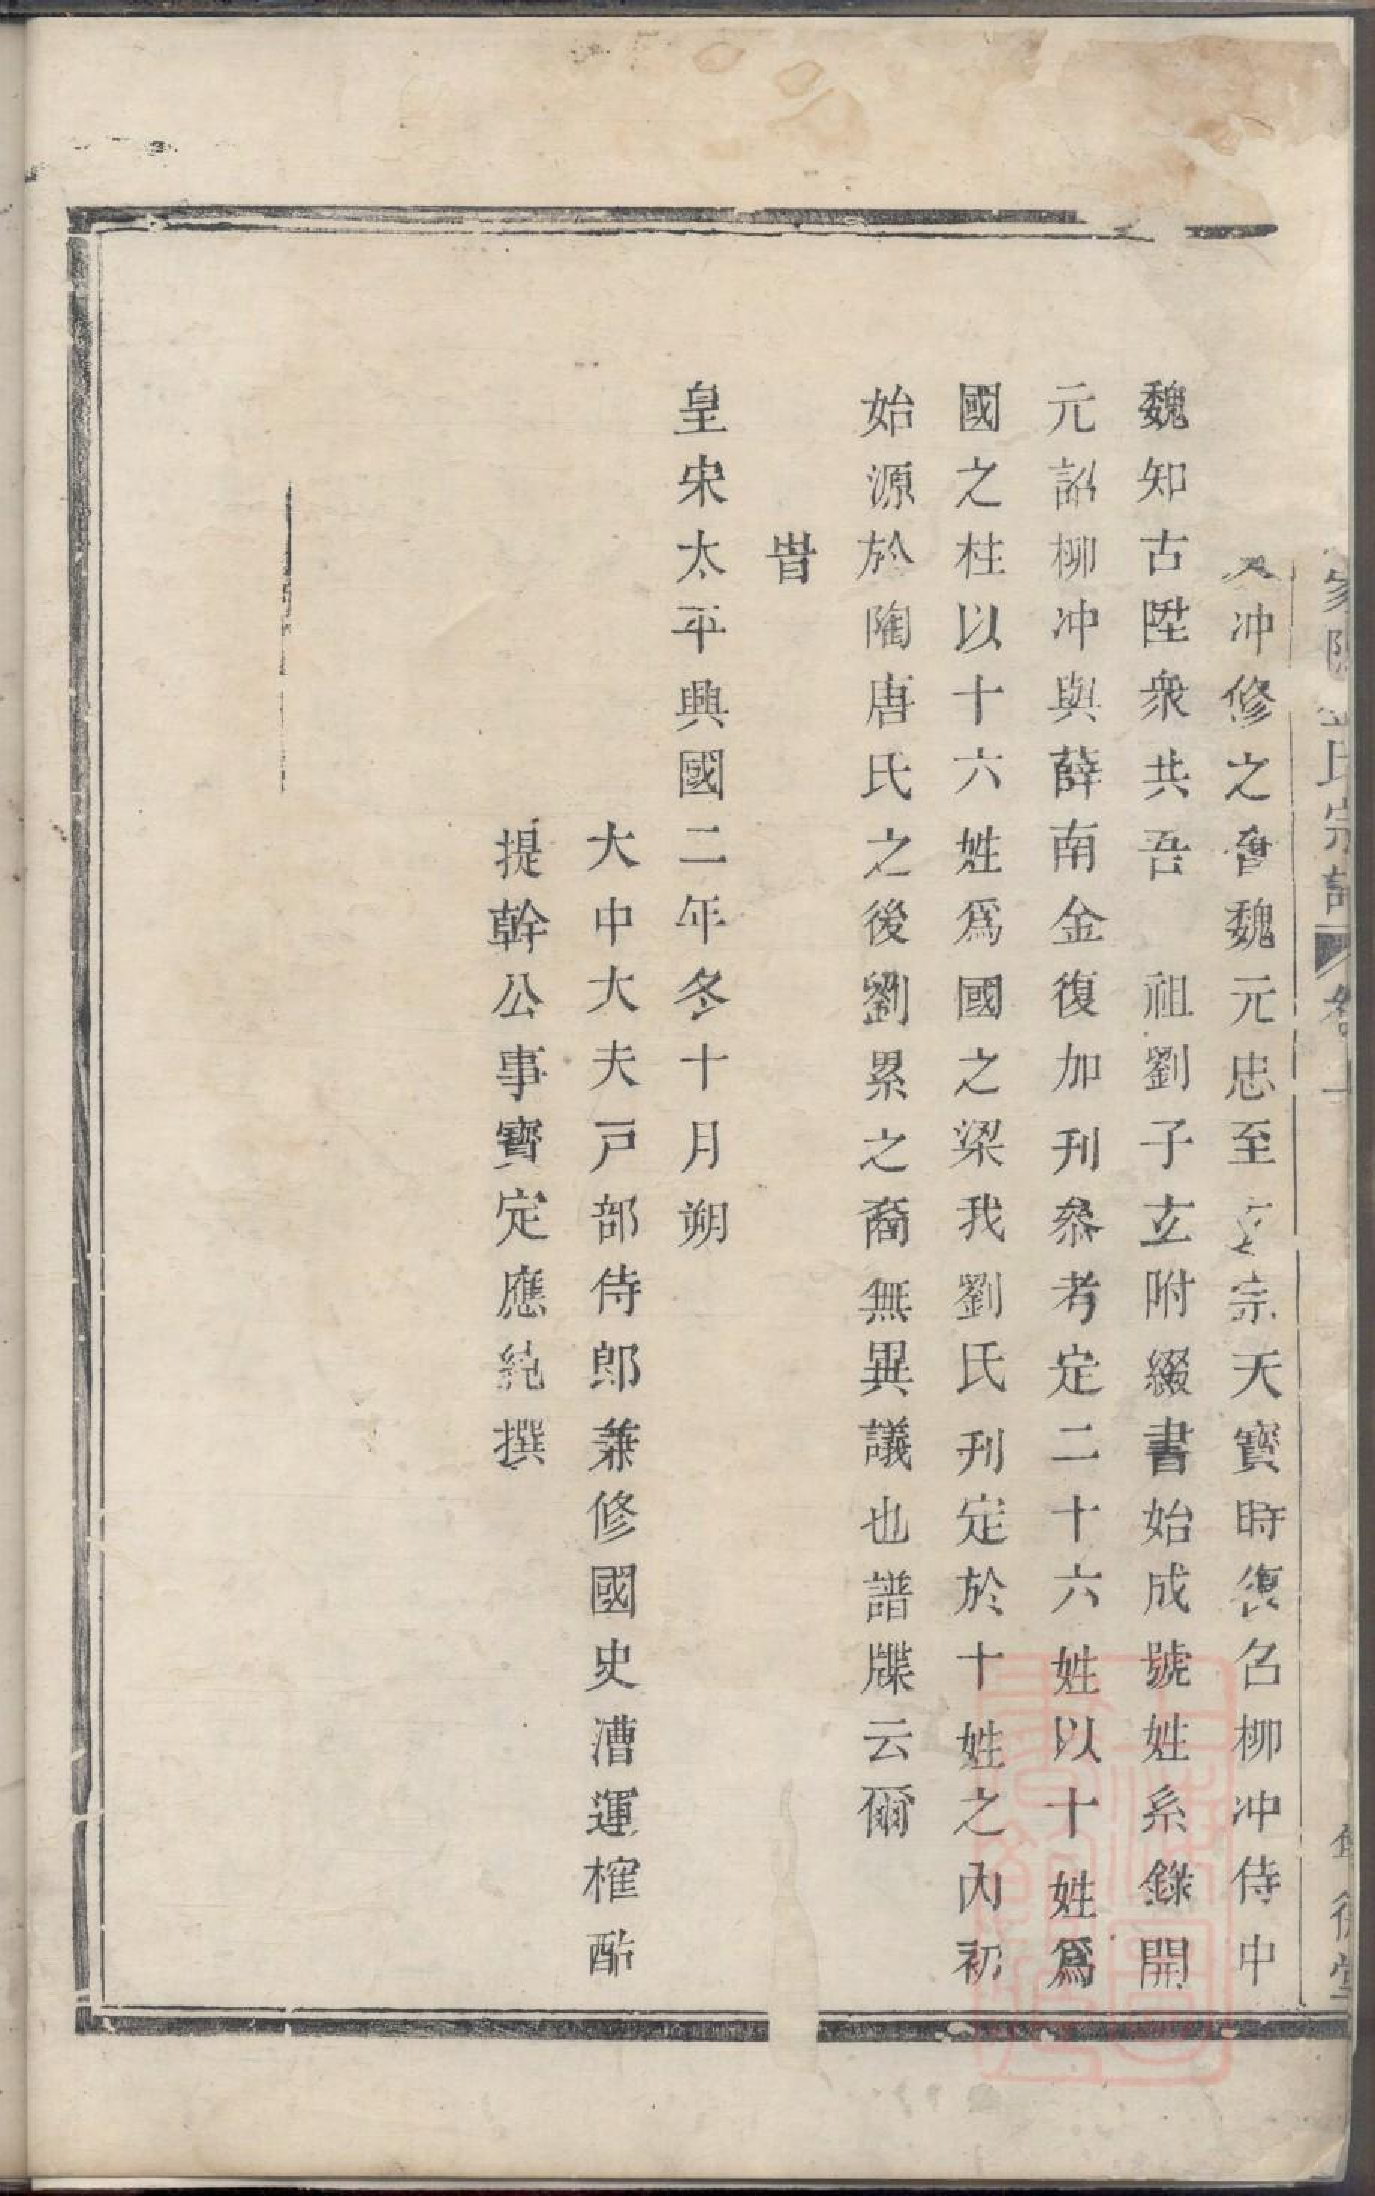 冲修之會魏元忠至玄宗天寶時復名柳冲侍中
魏知古陞衆共吾 祖劉子玄附綴書始成號姓系錄開
元詔柳冲與薛南金復加刊叅考定二十六姓以十姓爲
國之柱以十六姓爲國之梁我劉氏刊定於十姓之內初
始源於陶唐氏之後劉累之裔無異議也譜牒云爾
旹
皇宋太平興國二年冬十月朔
大中大夫戸部侍郎兼修國史漕運榷酤
提幹公事寶定應純撰
氏宗譜